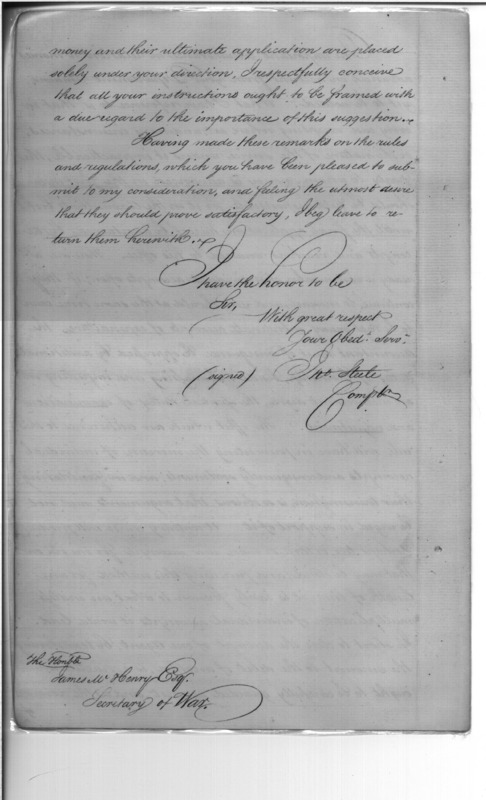 money and their ultimate application are placed
solely under your direction, I respectfully conceive
that all your instructions ought to be framed with
a due regard to the importance of this suggestion.
Having made these remarks on the rules
and regulations, which you have been pleased to sub-
mit to my consideration, and feeling the utmost desire
that they should prove satisfactory, I beg leave to re-
turn them herewith.
I have the honor to be
Sir,
With great respect
Your Obedt. Servt.
(signed) Jno. Steele
Comptr.
The Honble
James McHenry Esqr.
Secretary of War.